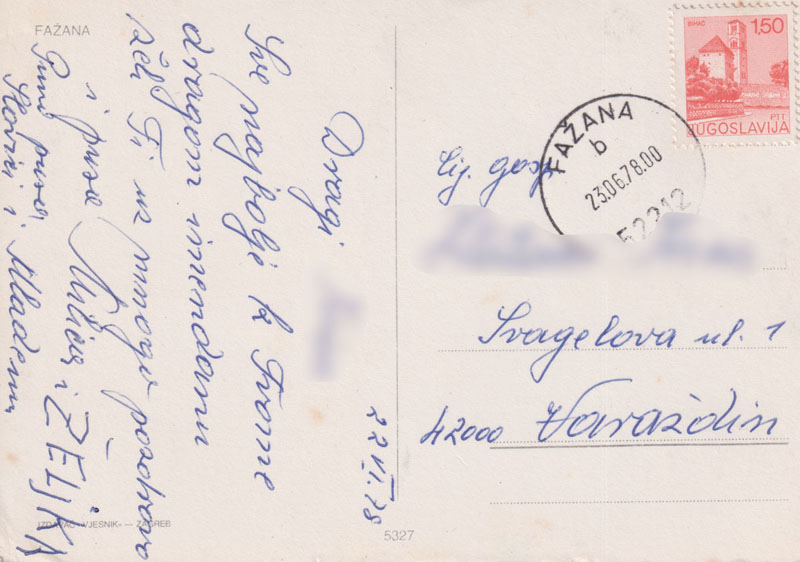 FAŽANA
Dragi
Sve najbolje k Tvome
dragom imendanu
želi Ti uz mnogo pozdrava
i pusa Milica i ŽELJKA
Puno pusa
i Mladenu
22 VI. 78
IZDAVAČ »VJESNIK« — ZAGREB
5327
BIHAĆ
1,50
PTT
JUGOSLAVIJA
FAŽANA
b
23.06.78.00
52212
Cij. gosp.
Svagelova ul. 1
42000 Varaždin